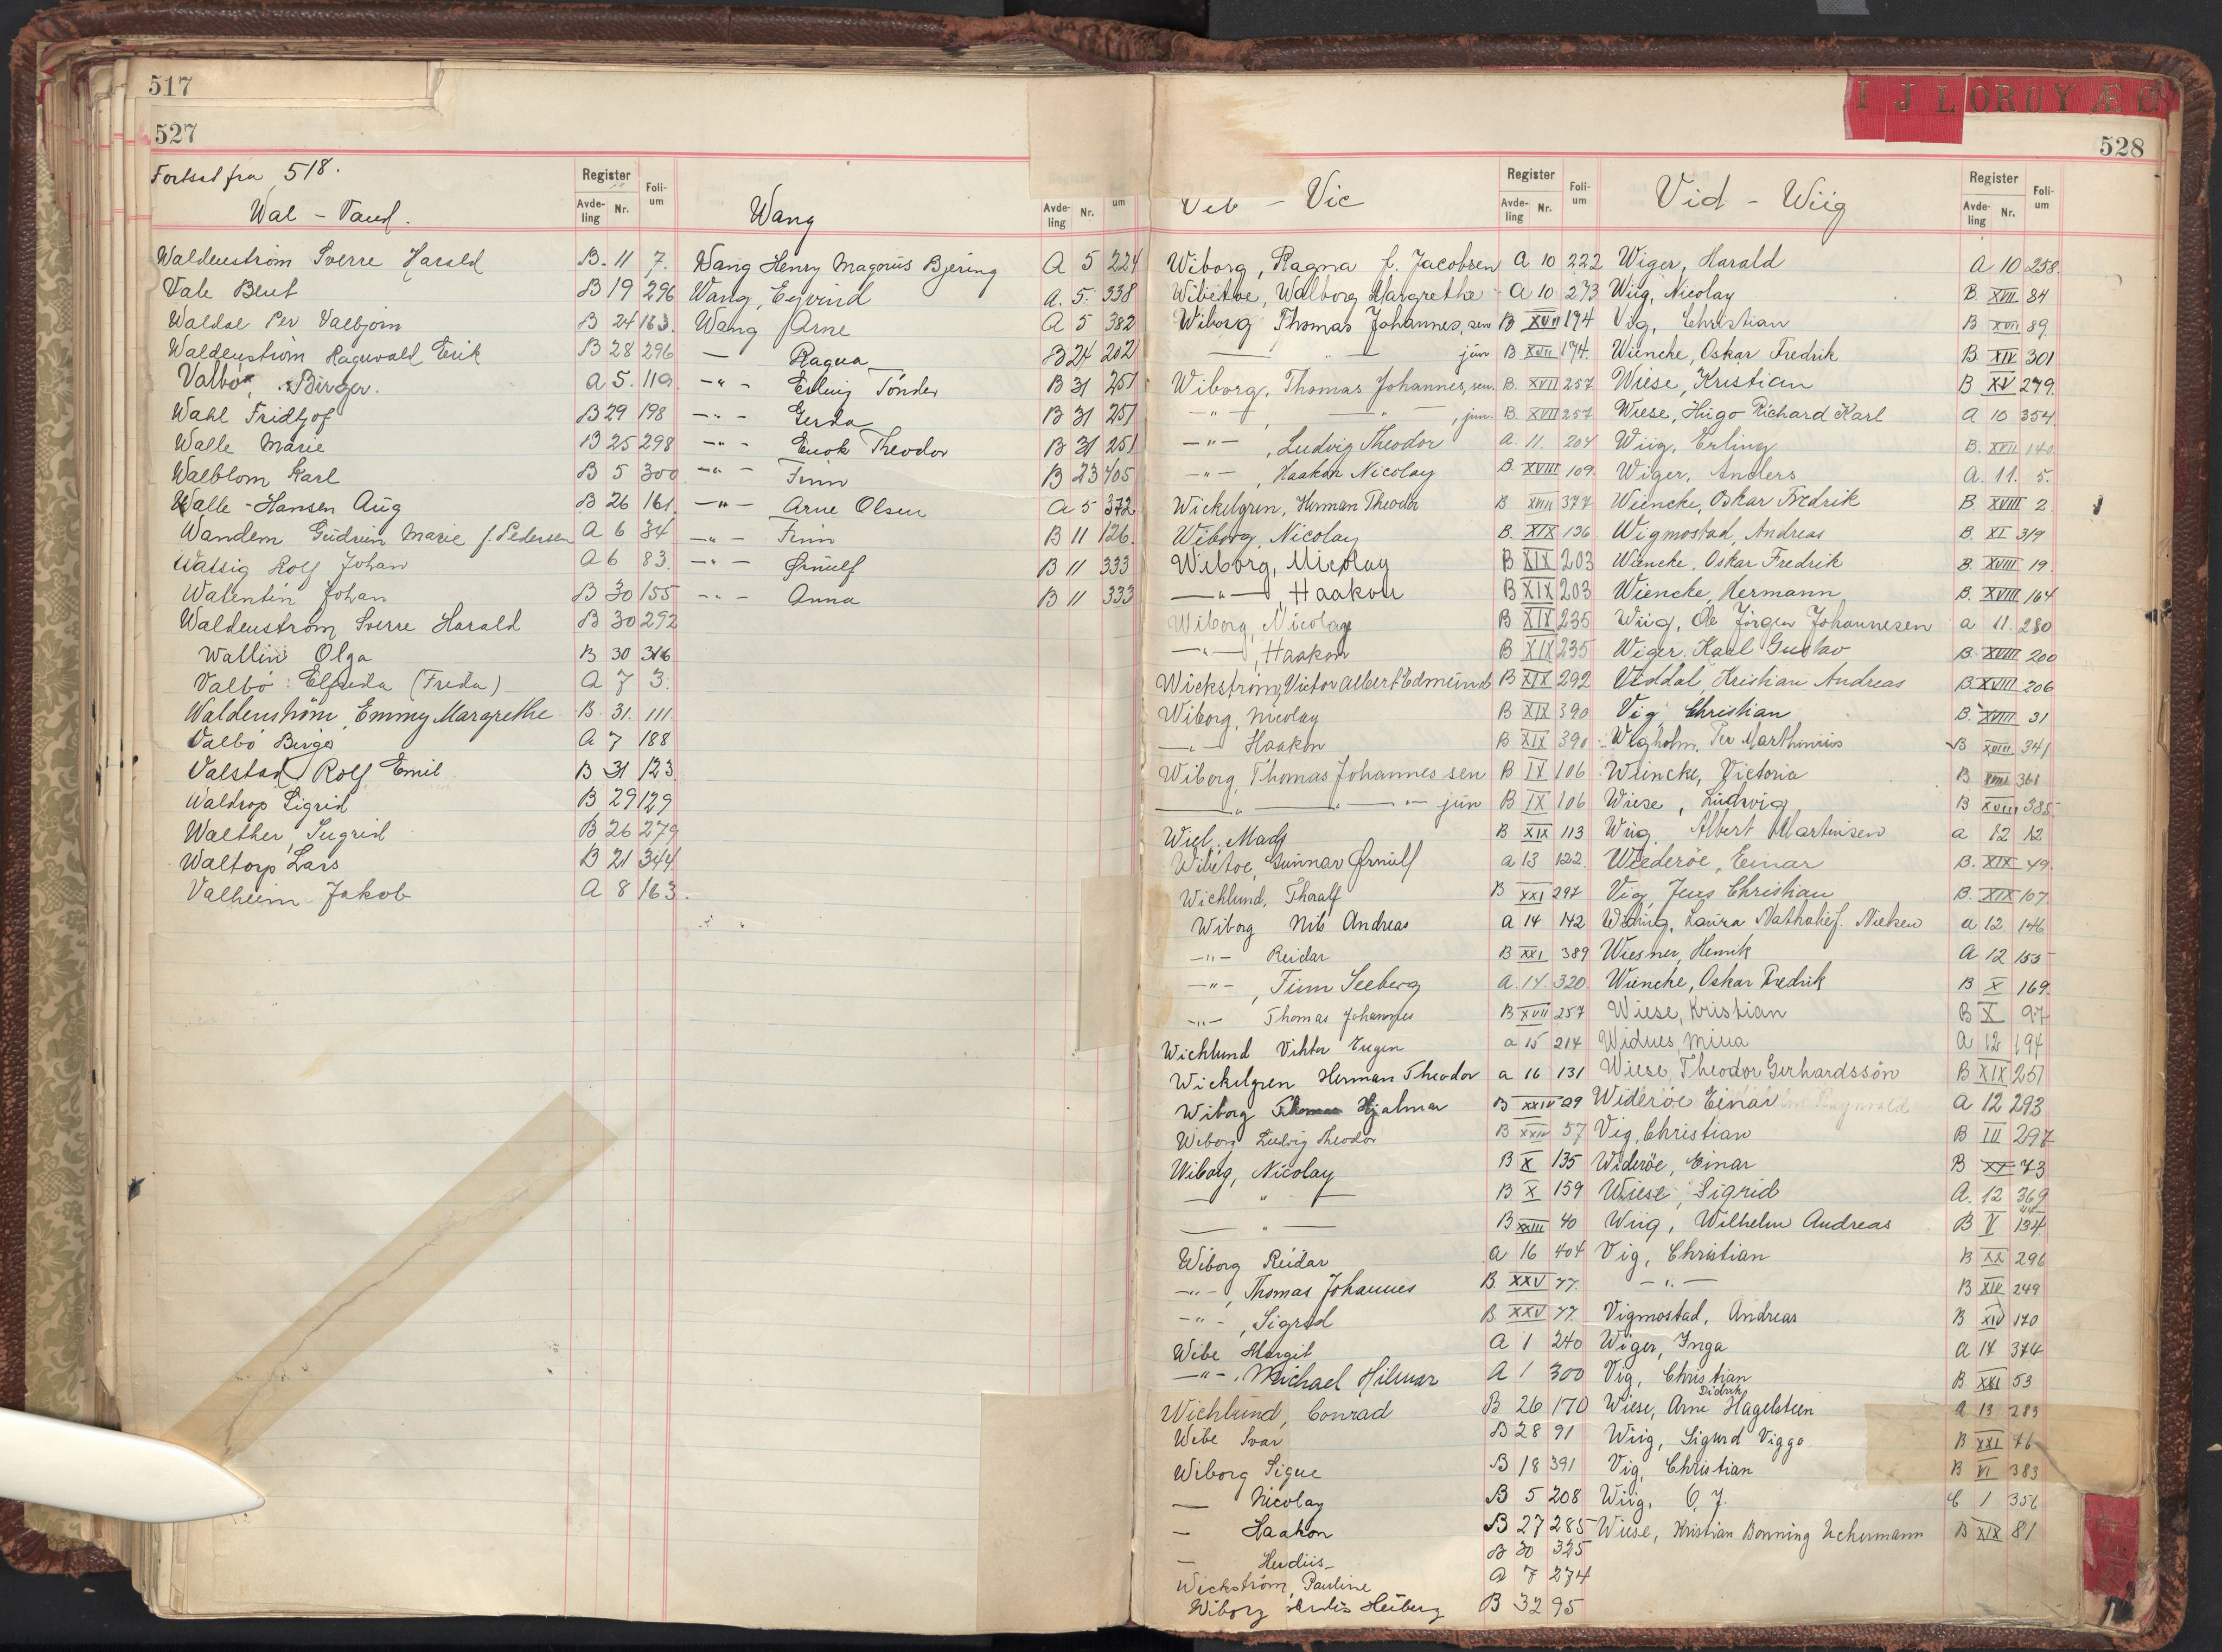 517
527
Fortsat fra 518.
Register
Avdeling Nr. Folium
Wal - Vand.
Waldenström Sverre Harald B. 11 7.
Vale Bent B 19 296
Waldal Per Valbjørn B 24 163.
Waldenström Ragnvald Erik B 28 296
Valbö, Birger. A 5. 119.
Wahl Fridtjof B 29 198
Walle Marie B 25 298
Walblom Karl B 5 300
Walle-Hansen Aug B 26 161.
Wandem Gudrun Marie f. Pedersen A 6 34
Watsig Rolf Johan A 6 83.
Walentin Johan B 30 155
Waldenström Sverre Harald B 30 292
Wallin Olga B 30 316
Valbö Elfrida (Freda) A 7 3.
Waldenström, Emmy Margrethe B. 31. 111.
Valbö Birger A 7 188
Valstad Rolf Emil B 31 123
Waldrop Sigrid B 29 129
Walther, Sugrid B 26 279
Waltorp Lars B 21 344
Valheim Jakob A 8 163.
Wang
Avdeling Nr. um
Wang Henry Magorius Bjering A 5 224
Wang, Eyvind A. 5. 338
Wang Arne A 5 382
— Ragna B 24 202
—"— Erling Tönder B 31 251
—"— Gerda B 31 251
—"— Enok Theodor B 31 251
—"— Finn B 23 405
—"— Arne Olsen A 5 372
—"— Finn B 11 126.
—"— Ørnulf B 11 333
—"— Anna B 11 333
I J L O R U Y Æ Ø
528
Vib - Vic
Register
Avdeling Nr. Folium
Wiborg, Ragna f. Jacobsen A 10 222
Wibetoe, Walborg Margrethe A 10 273
Wiborg Thomas Johannes, sen B XVII 174
—"— jun B XVII 174.
Wiborg, Thomas Johannes, sen. B. XVII 257.
—"— —"—, jun. B. XVII 257
—"—, Ludvig Theodor A. 11. 204
—"—, Haakon Nicolay B. XVIII 109.
Wickelgren, Herman Theodor B XVIII 377
Wiborg, Nicolay B. XIX 136
Wiborg, Nicolay B XIX 203
—"—, Haakon B XIX 203
Wiborg, Nicolay B XIX 235
—"—, Haakon B XIX 235
Wickström, Victor Albert Edmund B XIX 292
Wiborg, Nicolay B XIX 390
—"— Haakon B XIX 390
Wiborg, Thomas Johannes sen B IX 106
—"— —"— jun B IX 106
Wiel, Mady B XIX 113
Wibetoe, Gunnar Ørnulf a 13 122.
Wichlund, Thoralf B XXI 297
Wiborg Nils Andreas a 14 142
—"— Reidar B XXI 389
—"—, Finn Seeberg a. 14. 320.
—"— Thomas Johannes B XVII 257
Wichlund Viktor Eugen a 15 214
Wickelgren Herman Theodor a 16 131
Wiborg Hjalmar B XXIV 29
Wiborg Ludvig Theodor B XXIV 57
Wiborg, Nicolay B X 135
— " — B X 159
— " — B XXIII 40
Wiborg Reidar a 16 404
—"—, Thomas Johannes B XXV 77.
—"—, Sigrid B XXV 77.
Wibe Margit A 1 240
—"—, Michael Hilmar A 1 300
Wichlund, Conrad B 26 170
Wibe Ivar B 28 91
Wiborg Signe B 18 391
— Nicolay B 5 208
— Haakon B 27 285
— Herdis B 30 325
Wickström, Pauline A 7 274
Wiborg Herdis Heiberg B 32 95
Vid - Wiig
Register
Avdeling Nr. Folium
Wiger, Harald A 10 258.
Wiig, Nicolay B. XVII 84
Vig, Christian B XVII 89
Wiencke, Oskar Fredrik B. XIV 301
Wiese, Kristian B XV 279.
Wiese, Hugo Richard Karl A 10 354.
Wiig, Erling B. XVII 140.
Wiger, Anders A. 11. 5.
Wiencke, Oskar Fredrik B. XVIII 2
Wigmostad, Andreas B. XI 319
Wiencke, Oskar Fredrik B. XVIII 19.
Wiencke, Hermann B. XVIII 164
Wiig, Ole Jörgen Johannesen a 11. 280
Wiger, Karl Gustav B. XVIII 200
Viddal, Kristian Andreas B. XVIII 206
Vig, Christian B. XVIII 31
Wigholm, Per Marthinius B XVIII 341
Wiincke, Victoria B XVIII 361
Wiese, Ludvig B XVIII 385
Wiig Albert Martinsen a 12 12
Wiederöe, Einar B. XIX 49.
Vig, Jens Christian B. XIX 107.
Widing, Laura Nathalie f. Nielsen a 12. 146
Wiesner, Henrik A 12 155
Wiencke, Oskar Fredrik B X 169.
Wiese, Kristian B X 97
Widnes, Mina A 12 194
Wiese, Theodor Gerhardssön B XIX 251
Wideröe Einar A 12 293
Vig, Christian B III 297
Wideröe, Einar B XX 73
Wiese, Sigrid A. 12 369
Wiig, Wilhelm Andreas B V 134.
Vig, Christian B XX 296
—"— B XIV 249
Vigmostad, Andreas B XIV 170
Wiger, Inga a 14 374
Vig, Christian B XXI 53
Wiese, Arne Didrik Hagelsteen a 13 283
Wiig, Sigurd Viggo B XXI 76
Vig, Christian B VI 383
Wiig, O. J. C 1 356
Wiese, Kristian Bonning Uchermann B XIX 81